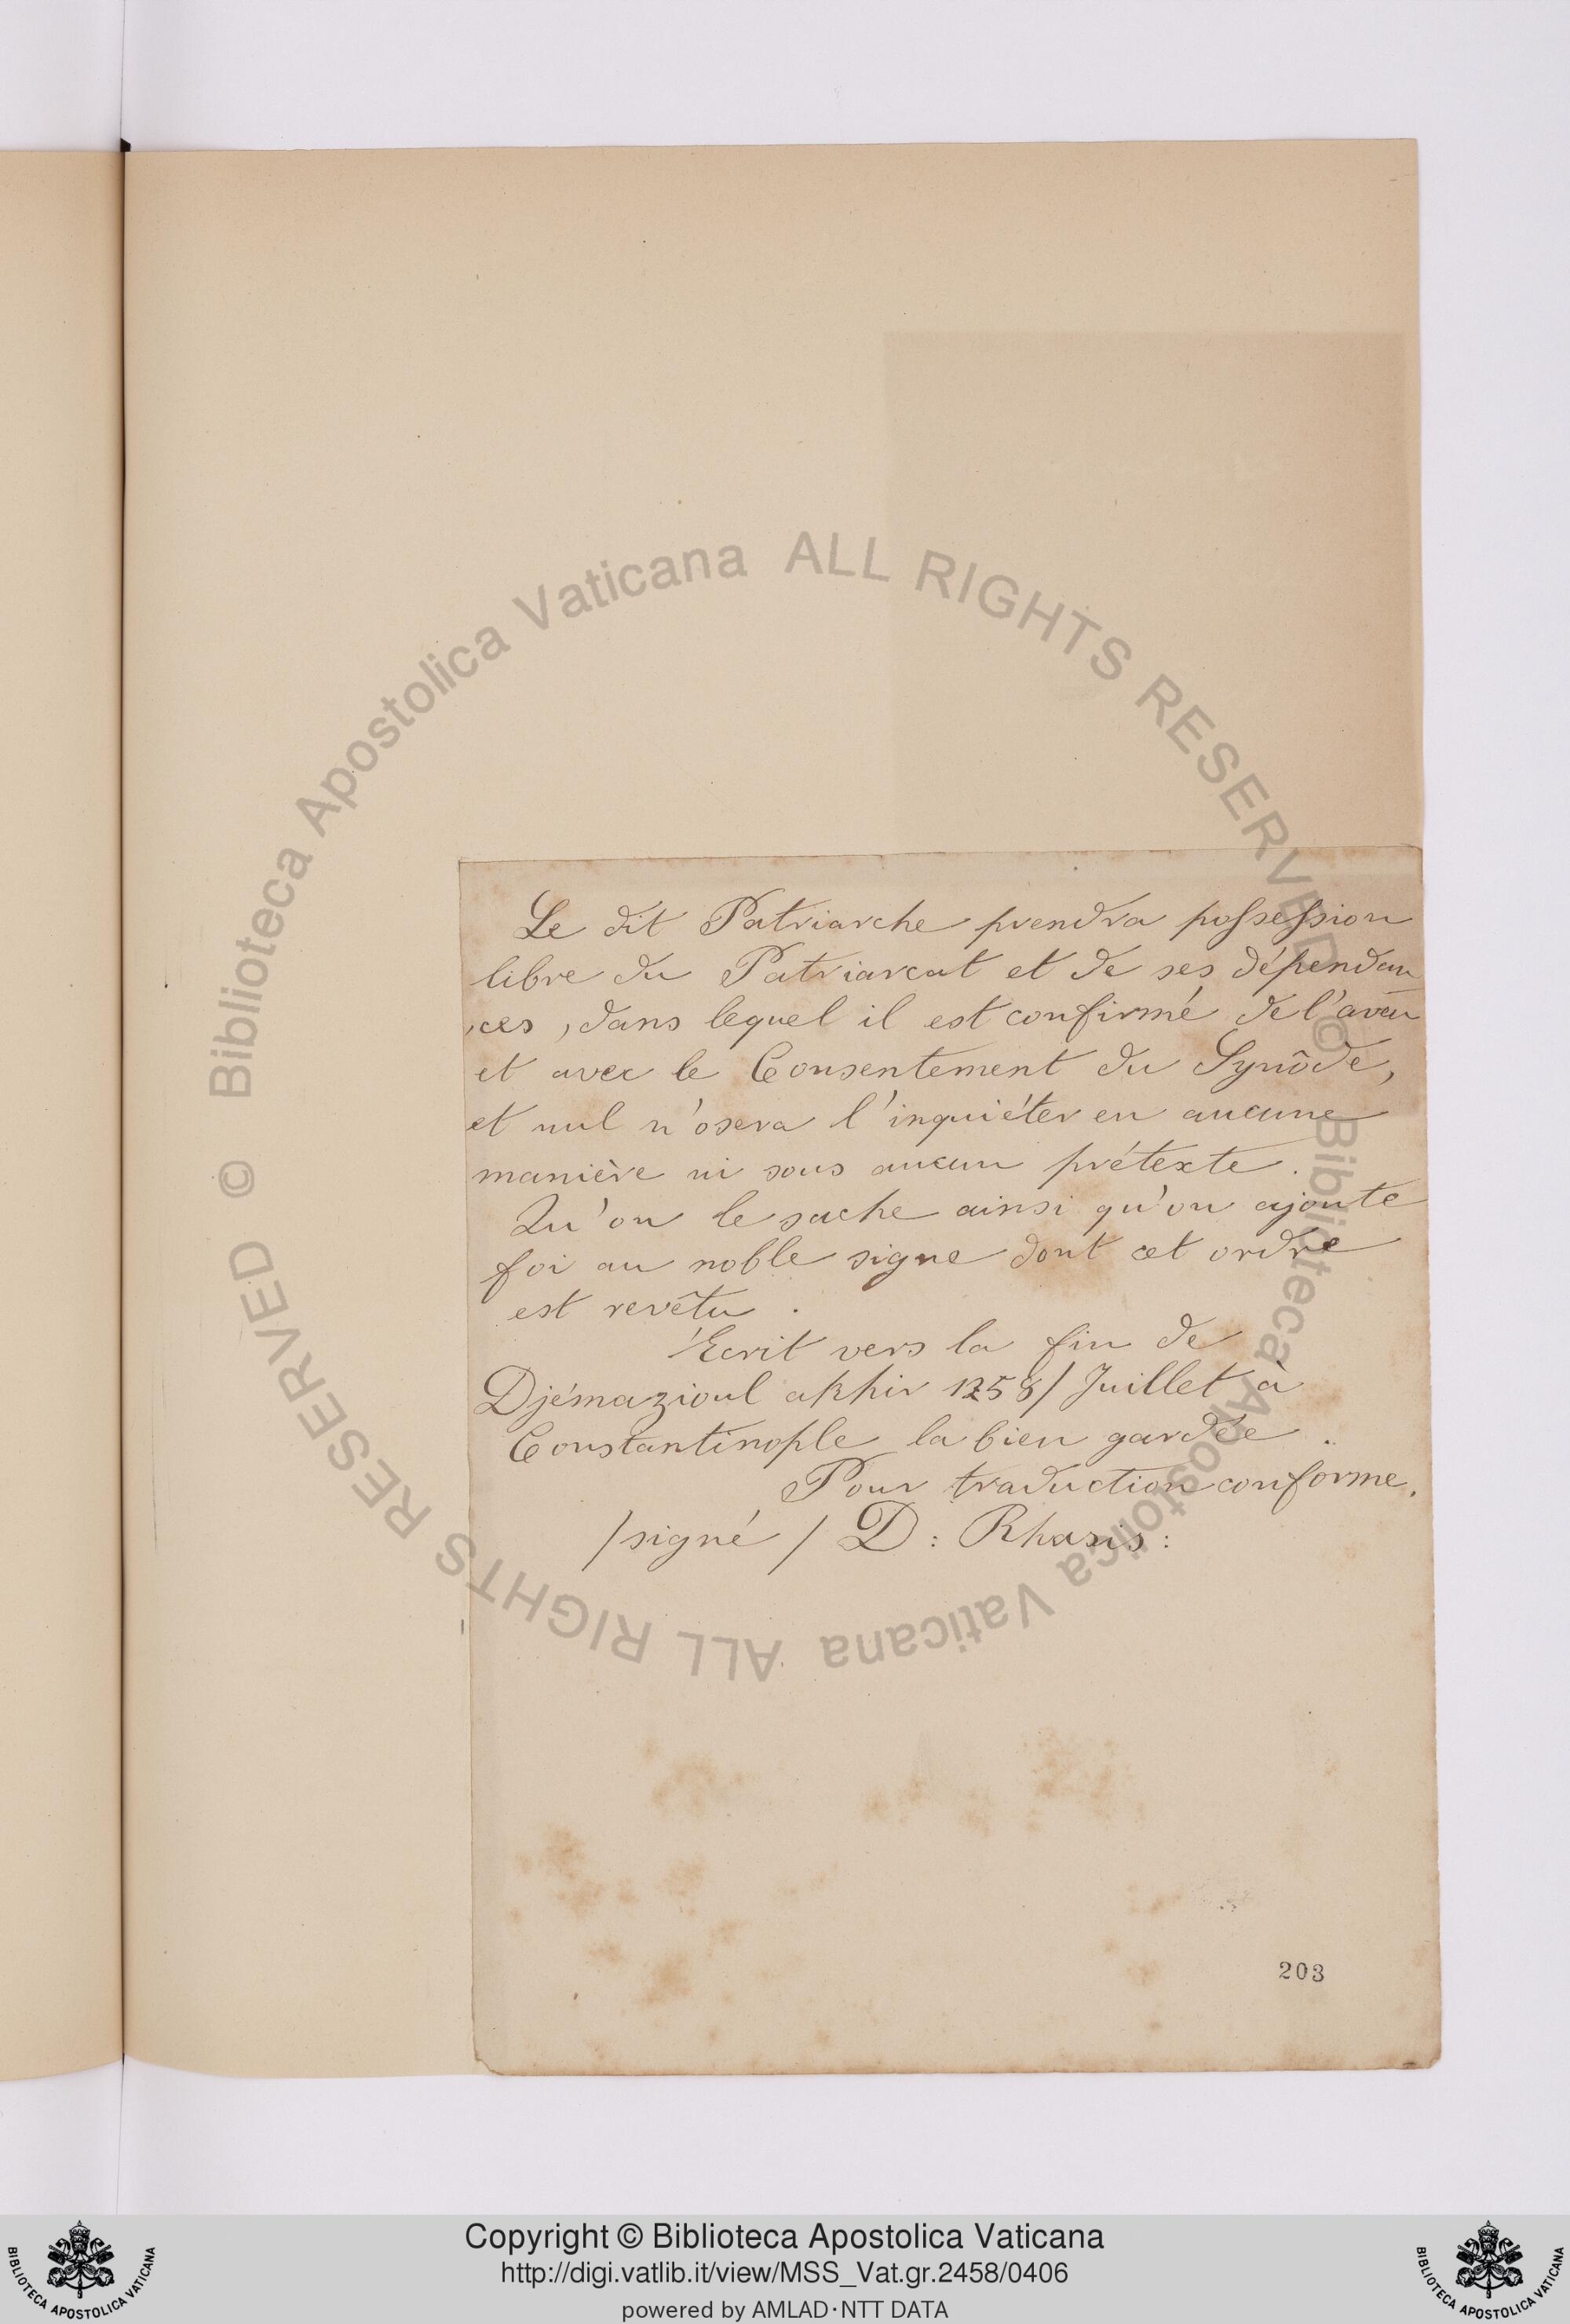 Le dit Patriarche prendra possession
libre du Patriarcat et de ses dépendan
,ces, dans lequel il est confirmé de l'aveu
et avec le Consentement du Synôde,
et nul n'osera l'inquiéter en aucune
manière ni sous aucun prétexte.
Qu'on le sache ainsi qu'on ajoute
foi au noble signe dont cet ordre
est revêtu.
Écrit vers la fin de
Djémazioul akhir 1258/ Juillet à
Constantinople la bien gardée.
Pour traduction conforme.
/signé/ D: Rhasis:
203
Biblioteca Apostolica Vaticana ALL RIGHTS RESERVED ©
Biblioteca Apostolica Vaticana ALL RIGHTS RESERVED ©
Copyright © Biblioteca Apostolica Vaticana
http://digi.vatlib.it/view/MSS_Vat.gr.2458/0406
powered by AMLAD·NTT DATA
BIBLIOTECA APOSTOLICA VATICANA
BIBLIOTECA APOSTOLICA VATICANA